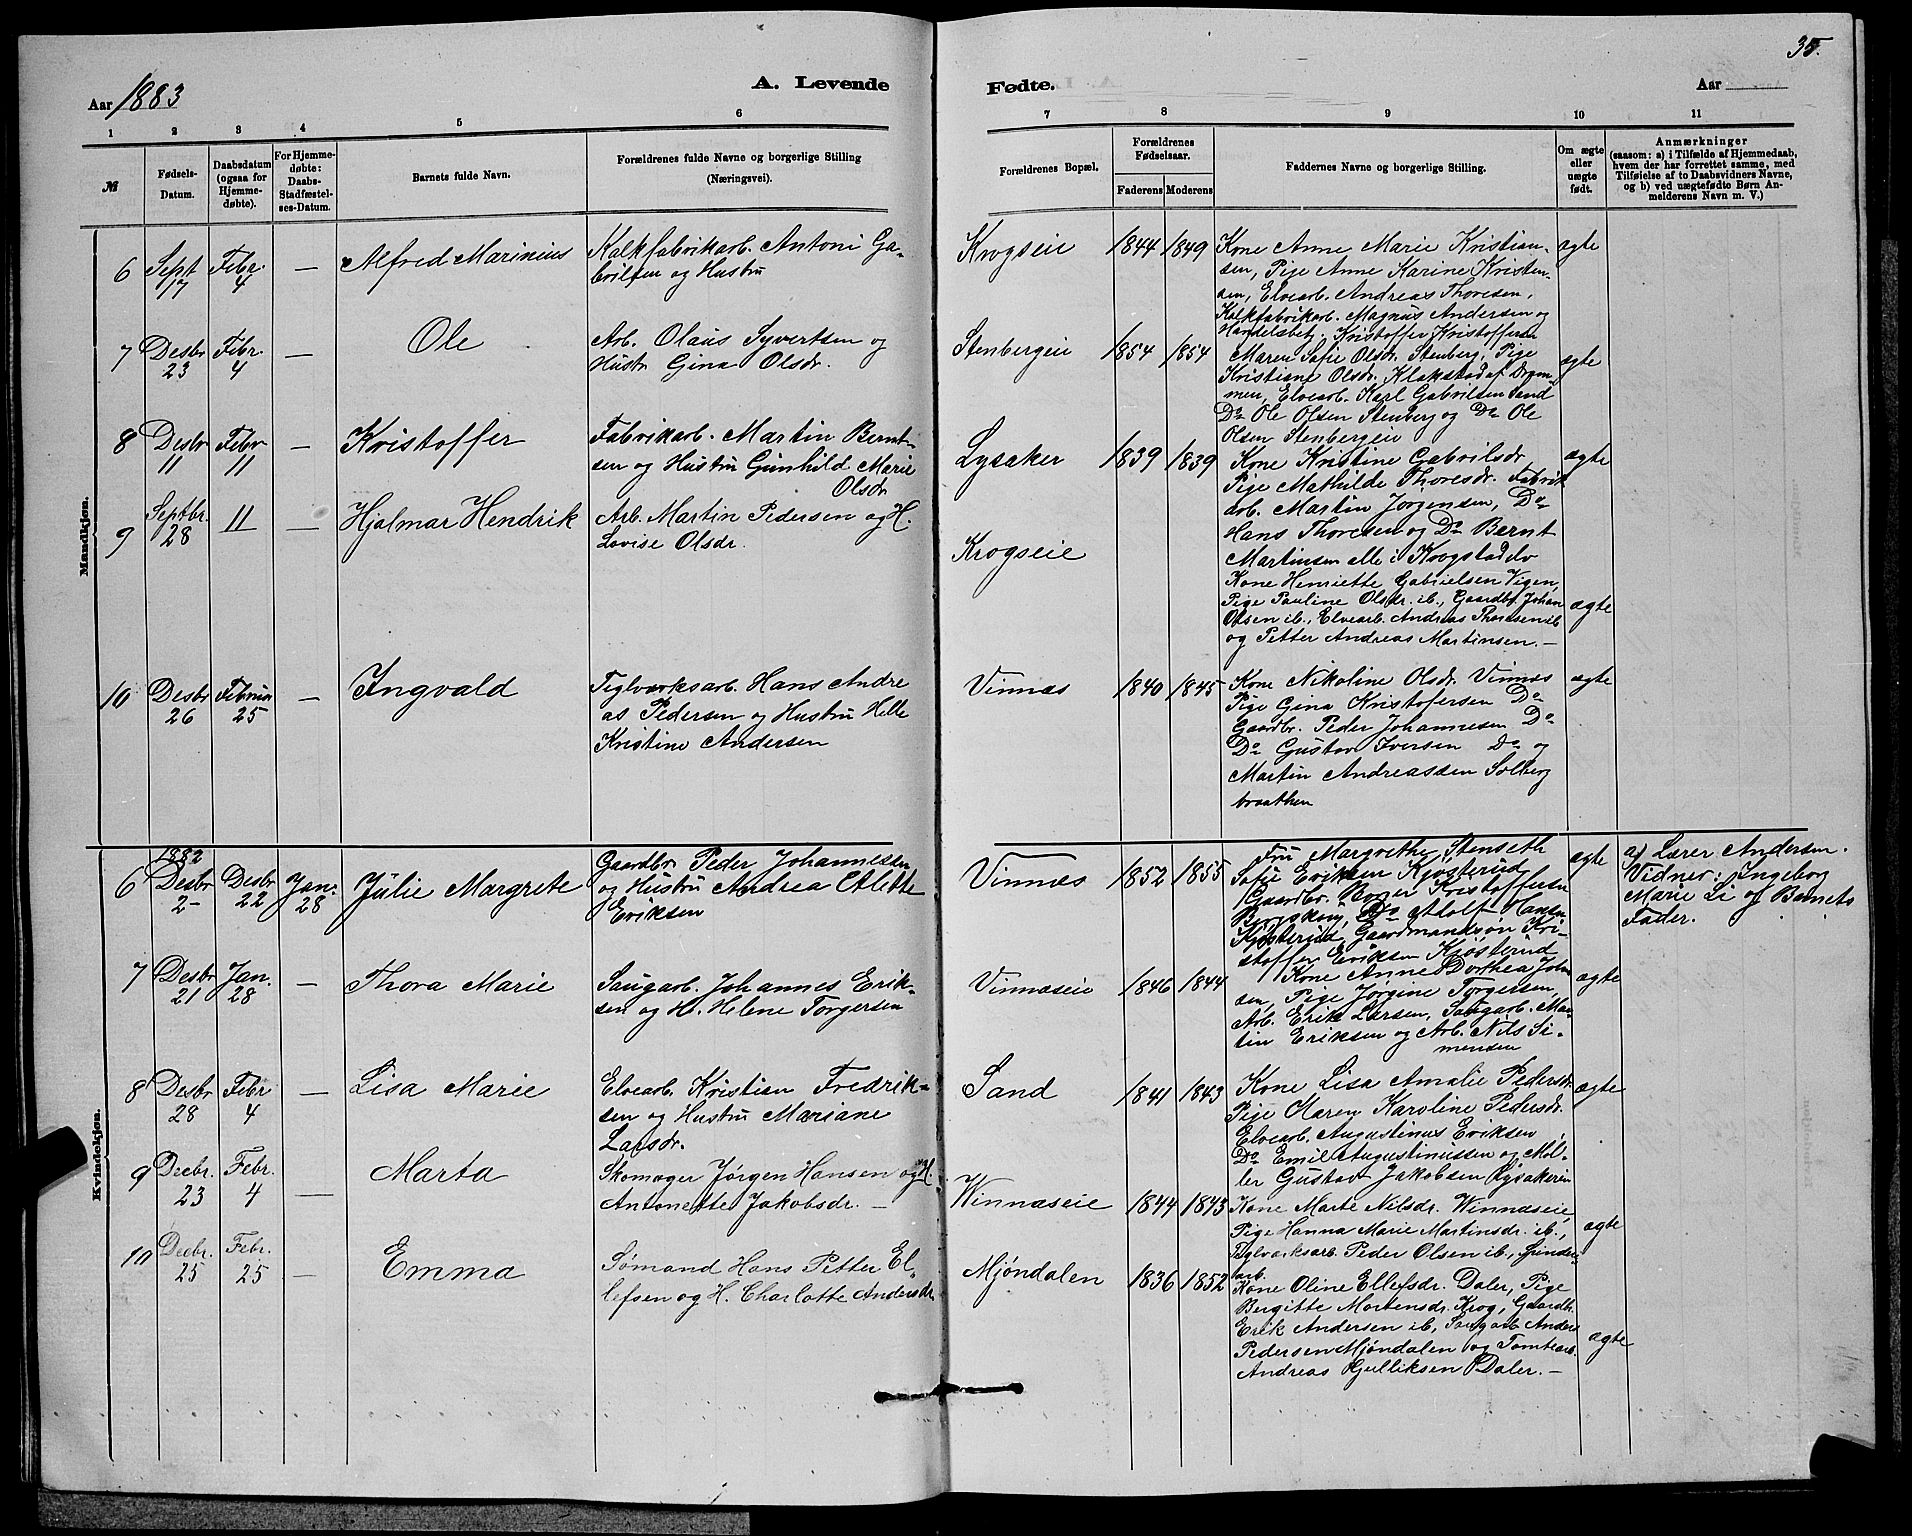 35.
Aar 1883
A. Levende
Fødte.
Aar
1 2 3 4 5 6 7 8 9 10 11
№
Fødsels-
Datum.
Daabsdatum
(ogsaa for
Hjemme-
døbte).
For Hjemme-
døbte:
Daabs-
Stadfæstel-
ses-Datum.
Barnets fulde Navn.
Forældrenes fulde Navne og borgerlige Stilling
(Næringsvei).
Forældrenes Bopæl.
Forældrenes
Fødselsaar.
Faderens Moderens
Faddernes Navne og borgerlige Stilling.
Om ægte
eller
uægte
født.
Anmærkninger
(saasom: a) i Tilfælde af Hjemmedaab,
hvem der har forrettet samme, med
Tilføielse af to Daabsvidners Navne,
og b) ved uægtefødte Børn An-
melderens Navn m. V.)
Mandkjøn.
6
Sept
17
Febr.
4
—
Alfred Marinius
Kalkfabrikarb. Antoni Ga-
brilsen og Hustru
Krogseie
1844 1849
Kone Anne Marie Kristian-
sen, Pige Anne Karine Kristen-
sen, Elvearb. Andreas Thoresen,
Kalkfabrikarb. Magnus Andersen og
Handelsbetj. Kristoffer Kristoffersen
ægte
7
Desbr
23
Febr.
4
—
Ole
Arb. Olaus Syvertsen og
Hustr Gina Olsdr.
Stenbergeie
1854 1854
Maren Sofie Olsdr. Stenberg, Pige
Kristiane Olsdr. Klakstad af Dram-
men, Elvearb. Karl Gabrilsen Sand
Do Ole Olsen Stenberg og Do Ole
Olsen Stenbergeie
ægte
8
Desbr
11
Febr
11
—
Kristoffer
Fabrikarb. Martin Bernt-
sen og Hustru Gunhild Marie
Olsdr
Lysaker
1839 1839
Kone Kristine Gabrilsdr
Pige Mathilde Thoresdr. Fabrik
arb. Martin Jörgensen, Do
Hans Thoresen og Do Bernt
Martinsen alle i Krogstadelv
ægte
9
Septbr.
28
11
—
Hjalmar Hendrik
Arb. Martin Pedersen og H.
Lovise Olsdr.
Krogseie
Kone Henriette Gabrielsen Vigen,
Pige Pauline Olsdr. ib., Gaardbr. Johan
Olsen ib., Elvearb. Andreas Thoresen ib
og Petter Andreas Martinsen. —
ægte
10
Desbr
26
Februar
25
—
Ingvald
Teglværksarb. Hans Andre
as Pedersen og Hustru Helle
Kristine Andersen
Vinnæs
1840 1845
Kone Nikoline Olsdr. Vinnæs
Pige Gina Kristofersen Do
Gaardbr. Peder Johannesen Do
Do Gustav Iversen Do og
Martin Andreassen Solberg
braathen
ægte
Kvindekjøn.
6
1882
Desbr
2
Desbr
22
Jan.
28
Julie Margrete
Gaardbr Peder Johannesen
og Hustru Andrea Alette
Eriksen
Vinnæs
1852 1855
Fru Margrethe Stenseth
Sofie Eriksen Kjøsterud
Gaardbr. Borger Kristoffersen
Bergskoug, Do Adolf Hansen
Kjøsterud, Gaardmandssøn Kri-
stoffer Eriksen Kjøsterud
ægte
a) Lærer Andersen.
Vidner: Ingeborg
Marie Li og Barnets
Fader.
7
Desbr
21
Jan.
28
—
Thora Marie
Saugarb. Johannes Erik-
sen og H. Helene Torgersen
Vinnæseie
1846 1844
Kone Anne Dorthea Johan
sen, Pige Jørgine Torgersen,
Arb. Erik Larsen, Saugarb. Mar-
tin Eriksen og Arb. Nils Si-
mensen
ægte
8
Desbr
28
Febr
4
—
Lisa Marie
Elvearb. Kristian Fredrik-
sen og Hustru Mariane
Larsdr.
Sand
1841 1843
Kone Lisa Amalie Pedersdr
Pige Maren Karoline Pedersdr.
Elvearb. Augustinus Eriksen,
Do Emil Augustinussen og Møl-
ler Gustav Jakobsen Lysakereie
ægte
9
Decbr.
23
Febr.
4
—
Marta
Skomager Jørgen Hansen og H.
Antonette Jakobsdr. —
Winnæseie
1844 1843
Kone Marte Nilsdr. Winnæseie,
Pige Hanna Marie Martinsdr. ib.,
Teglværksarb. Peder Olsen ib.,
arb.
ægte
10
Decbr.
25
Febr.
25
—
Emma
Sømand Hans Petter El-
lefsen og H. Charlotte Andersdr.
Mjöndalen
1836 1852
Kone Oline Ellefsdr. Daler, Pige
Bergitte Mortensdr. Krog, Gaardbr.
Erik Andersen ib., Saugarb Anders
Pedersen Mjöndalen og Tomtearb.
Andreas Gulliksen Daler. —
ægte